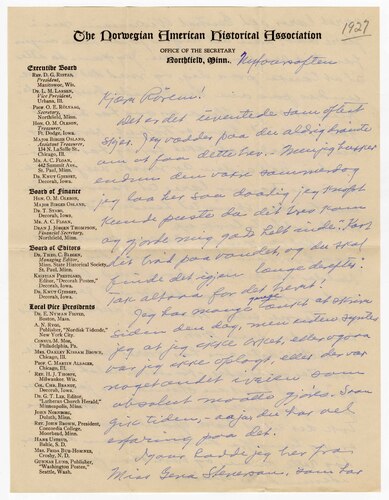 1927
The Norwegian American Historical Association
OFFICE OF THE SECRETARY
Northfield, Minn.
Nyttaarsaften
Executive Board
REV. D. G. RISTAD,
President,
Manitowoc, Wis.
DR. L. M. LARSEN,
Vice President,
Urbana, Ill.
PROF. O. E. RÖLVAAG,
Secretary,
Northfield, Minn.
HON. O. M. OLESON,
Treasurer,
Ft. Dodge, Iowa.
MAJOR BIRGER OSLAND,
Assistant Treasurer,
134 N. LaSalle St.,
Chicago, Ill.
MR. A. C. FLOAN,
442 Summit Ave.,
St. Paul, Minn.
DR. KNUT GJERSET,
Decorah, Iowa.
Board of Finance
HON. O. M. OLESON,
MAJOR BIRGER OSLAND,
DR. T. STABO,
Decorah, Iowa.
MR. A. C. FLOAN,
DEAN J. JÖRGEN THOMPSON,
Financial Secretary,
Northfield, Minn.
Board of Editors
DR. THEO. C. BLEGEN,
Managing Editor,
Minn. State Historical Society,
St. Paul, Minn.
KRISTIAN PRESTGARD,
Editor, "Decorah Posten",
Decorah, Iowa.
DR. KNUT GJERSET,
Decorah, Iowa.
Local Vice Presidents
DR. E. NYMAN FIGVED,
Boston, Mass.
A. N. RYGG,
Publisher, "Nordisk Tidende."
New York City.
CONSUL M. MOE,
Philadelphia, Pa.
MRS. OAKLEY KISSAM BROWN,
Chicago, Ill.
PROF. C. MARTIN ALSAGER,
Chicago, Ill.
REV. H. J. THORPE,
Milwaukee, Wis.
COL. CHR. BRANDT,
Decorah, Iowa.
DR. G. T. LEE, Editor,
"Lutheran Church Herald,"
Minneapolis, Minn.
JOHN NORBORG,
Duluth, Minn.
REV. JOHN BROWN, President,
Concordia College,
Moorhead, Minn.
HANS USTRUD,
Baltic, S. D.
MRS. FRIDA BUE-HOMNES,
Crosby, N. D.
GUNNAR LUND, Publisher,
"Washington Posten",
Seattle, Wash.
Kjære Rönem!
Det er det uventede som oftest
skjer. Jeg vædder paa du aldrig drömte
om at faa dette brev. Men jeg husker
endnu den varme sommerdag
jeg laa her saa daarlig jeg knapt
kunde puste da dit brev kom
og gjorde mig gla helt inde. Fort
dit træd paa vandet, og du skal
finde det igjen længe derefter.
Tak altsaa for det brevet!
Jeg har mange gange önsket at skrive
siden den dag, men enten syntes
jeg at jeg ikke orket, eller ogsaa
var jeg ikke oplagt, eller der var
noget andet i veien som
absolut maatte gjöres. Saan
gik tiden – aaja, du har vel
erfaring paa det.
Igaar hadde jeg brev fra
Miss Gena Stenerson, som har